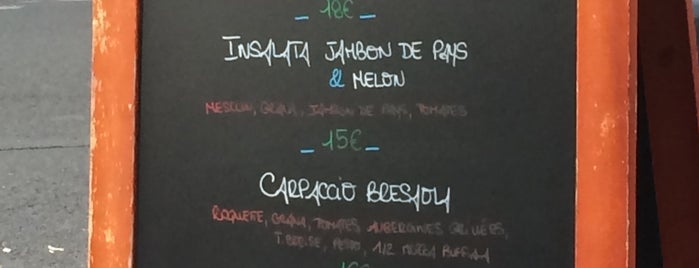 _ 18€ _
INSALATA JAMBON DE PAYS
& MELON
MESCLUN, GRANA, JAMBON DE PAYS, TOMATES
_ 15€ _
CARPACCIO BRESAOLA
ROQUETTE, GRANA, TOMATES AUBERGINES GRILLÉES,
PESTO, 1/2 BUFFALA